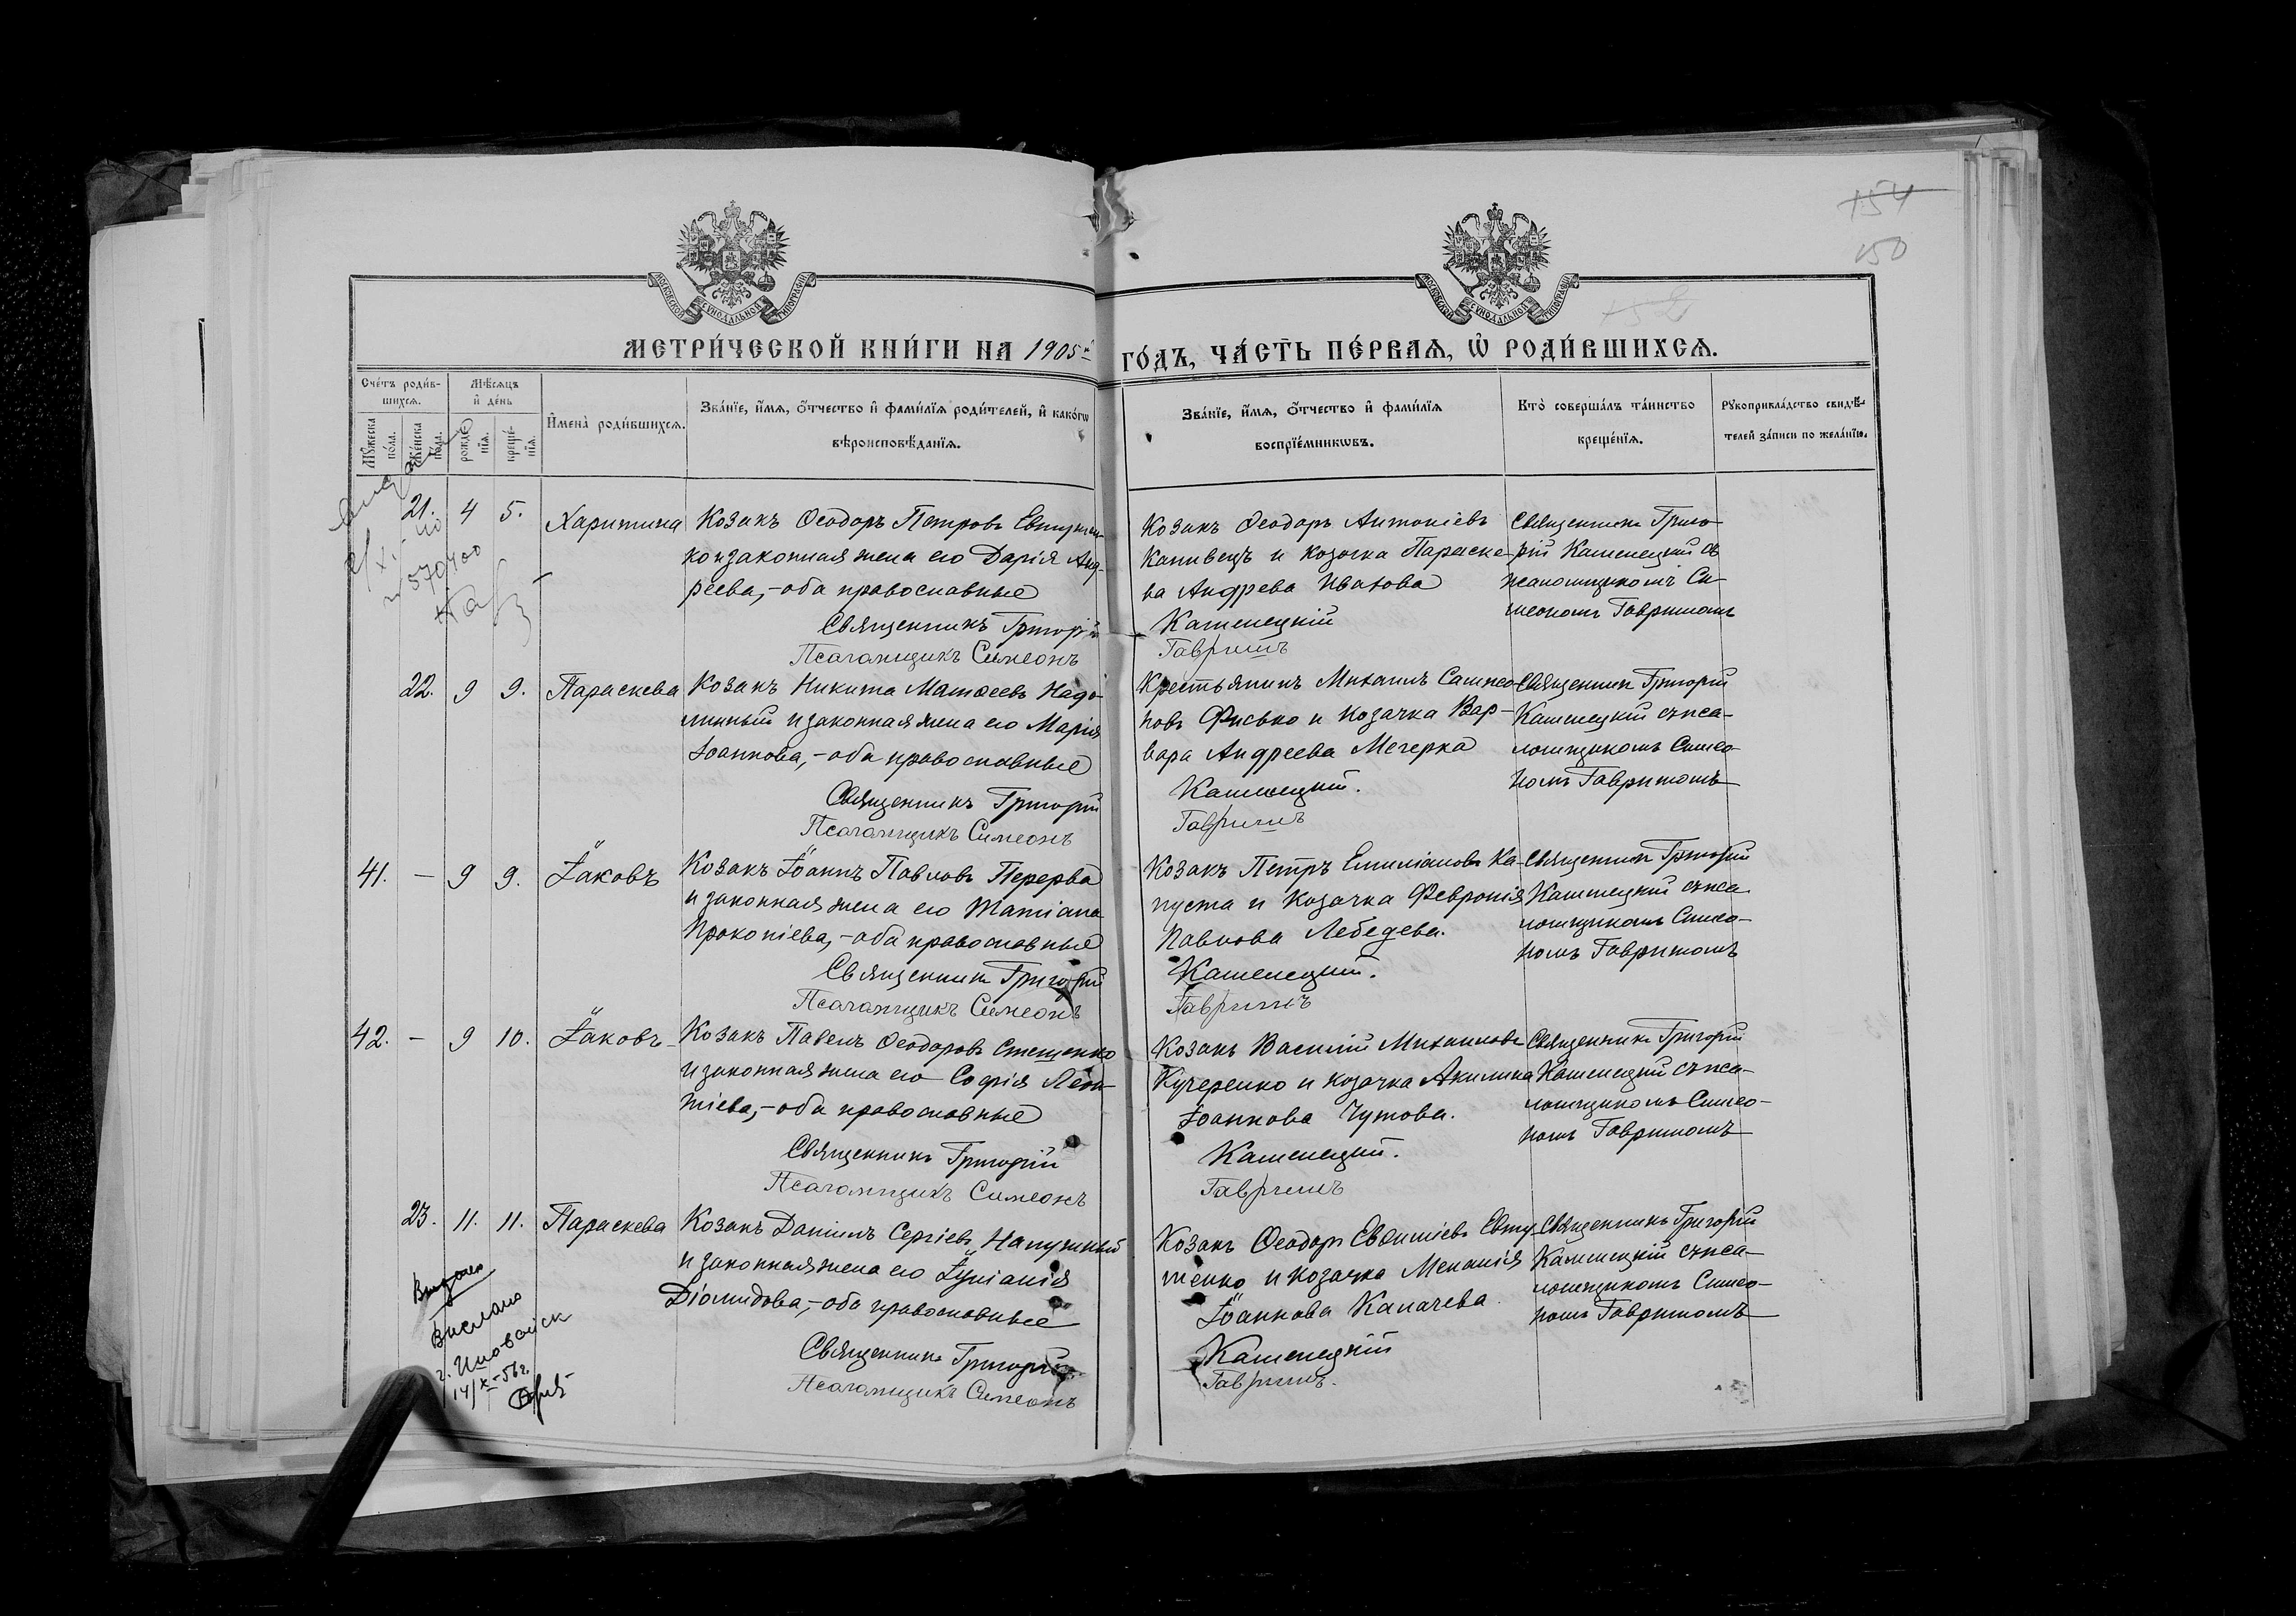 154
150
152
МОСКОВСКОЙ СѴНОДАЛЬНОЙ ТИПОГРАФІИ
МОСКОВСКОЙ СѴНОДАЛЬНОЙ ТИПОГРАФІИ
МЕТРИ́ЧЕСКОЙ КНИ́ГИ НА 1905й ГО́ДЪ, ЧА́СТЬ ПЕ́РВАѦ, Ѡ҆ РОДИ́ВШИХСѦ.
Сче́тъ роди́в-
шихсѧ.
Мѣ́сѧцъ
и҆ де́нь
Мꙋ́жеска
по́ла.
Же́нска
по́ла.
рожде́-
нїѧ.
креще́-
нїѧ.
И҆мена̀ роди́вшихсѧ.
Зва́нїе, и҆́мѧ, ѻ҆́тчество и҆ фами́лїѧ роди́телей, и҆ како́гѡ
вѣроисповѣ́данїѧ.
Зва́нїе, и҆́мѧ, ѻ҆́тчество и҆ фами́лїѧ
воспрїе́мникѡвъ.
Кто̀ соверша́лъ та́инство
креще́нїѧ.
Рꙋкоприкла́дство свидѣ́-
телей за́писи по жела́нїю.
21. 4 5. Харитина
Козакъ Ѳеодоръ Петровъ Евтушен-
ко и законная жена его Дарія Анд-
реева,-оба православные
Священникъ Григорій
Псаломщикъ Симеонъ
Козакъ Ѳеодоръ Антоніевъ
Капивецъ и козачка Параске-
ва Андрева Ивахова
Каменецкій
Гавришъ
Священникъ Григо-
рій Каменецкій съ
псаломщикомъ Си-
меономъ Гавришомъ
570400
22. 9 9. Параскева
Козакъ Никита Матѳеевъ Надо-
линный и законная жена его Марія
Іоаннова,-оба православные
Священникъ Григорій
Псаломщикъ Симеонъ
Крестьянинъ Михаилъ Сампсо-
новъ Фисько и козачка Вар-
вара Андреева Мечерка
Каменецкій.
Гавришъ
Священникъ Григорій
Каменецкій съ пса-
ломщикомъ Симео-
номъ Гавришомъ
41. - 9 9. Іаковъ
Козакъ Іоаннъ Павловъ Перерва
и законная жена его Татіана
Прокопіева,-оба православные
Священникъ Григорій
Псаломщикъ Симеонъ
Козакъ Петръ Емиліановъ Ка-
пуста и козачка Февронія
Павлова Лебедева.
Каменецкій.
Гавришъ
Священникъ Григорій
Каменецкій съ пса-
ломщикомъ Симео-
номъ Гавришомъ
42. - 9 10. Іаковъ
Козакъ Павелъ Ѳеодоровъ Стеценко
и законная жена его Софія Леон-
тіева,-оба православные
Священникъ Григорій
Псаломщикъ Симеонъ
Козакъ Василій Михаиловъ
Кучеренко и козачка Акилина
Іоаннова Чутова.
Каменецкій.
Гавришъ
Священникъ Григорій
Каменецкій съ пса-
ломщикомъ Симео-
номъ Гавришомъ
23. 11. 11. Параскева
Козакъ Даніилъ Сергіевъ Напужный
и законная жена его Іуліанія
Діомидова,-оба православные
Священникъ Григорій
Псаломщикъ Симеонъ
Козакъ Ѳеодоръ Евѳиміевъ Евту-
шенко и козачка Меланія
Іоаннова Калачева.
Каменецкій
Гавришъ.
Священникъ Григорій
Каменецкій съ пса-
ломщикомъ Симео-
номъ Гавришомъ
Выслано
г. Иловайск
14/X-56г.